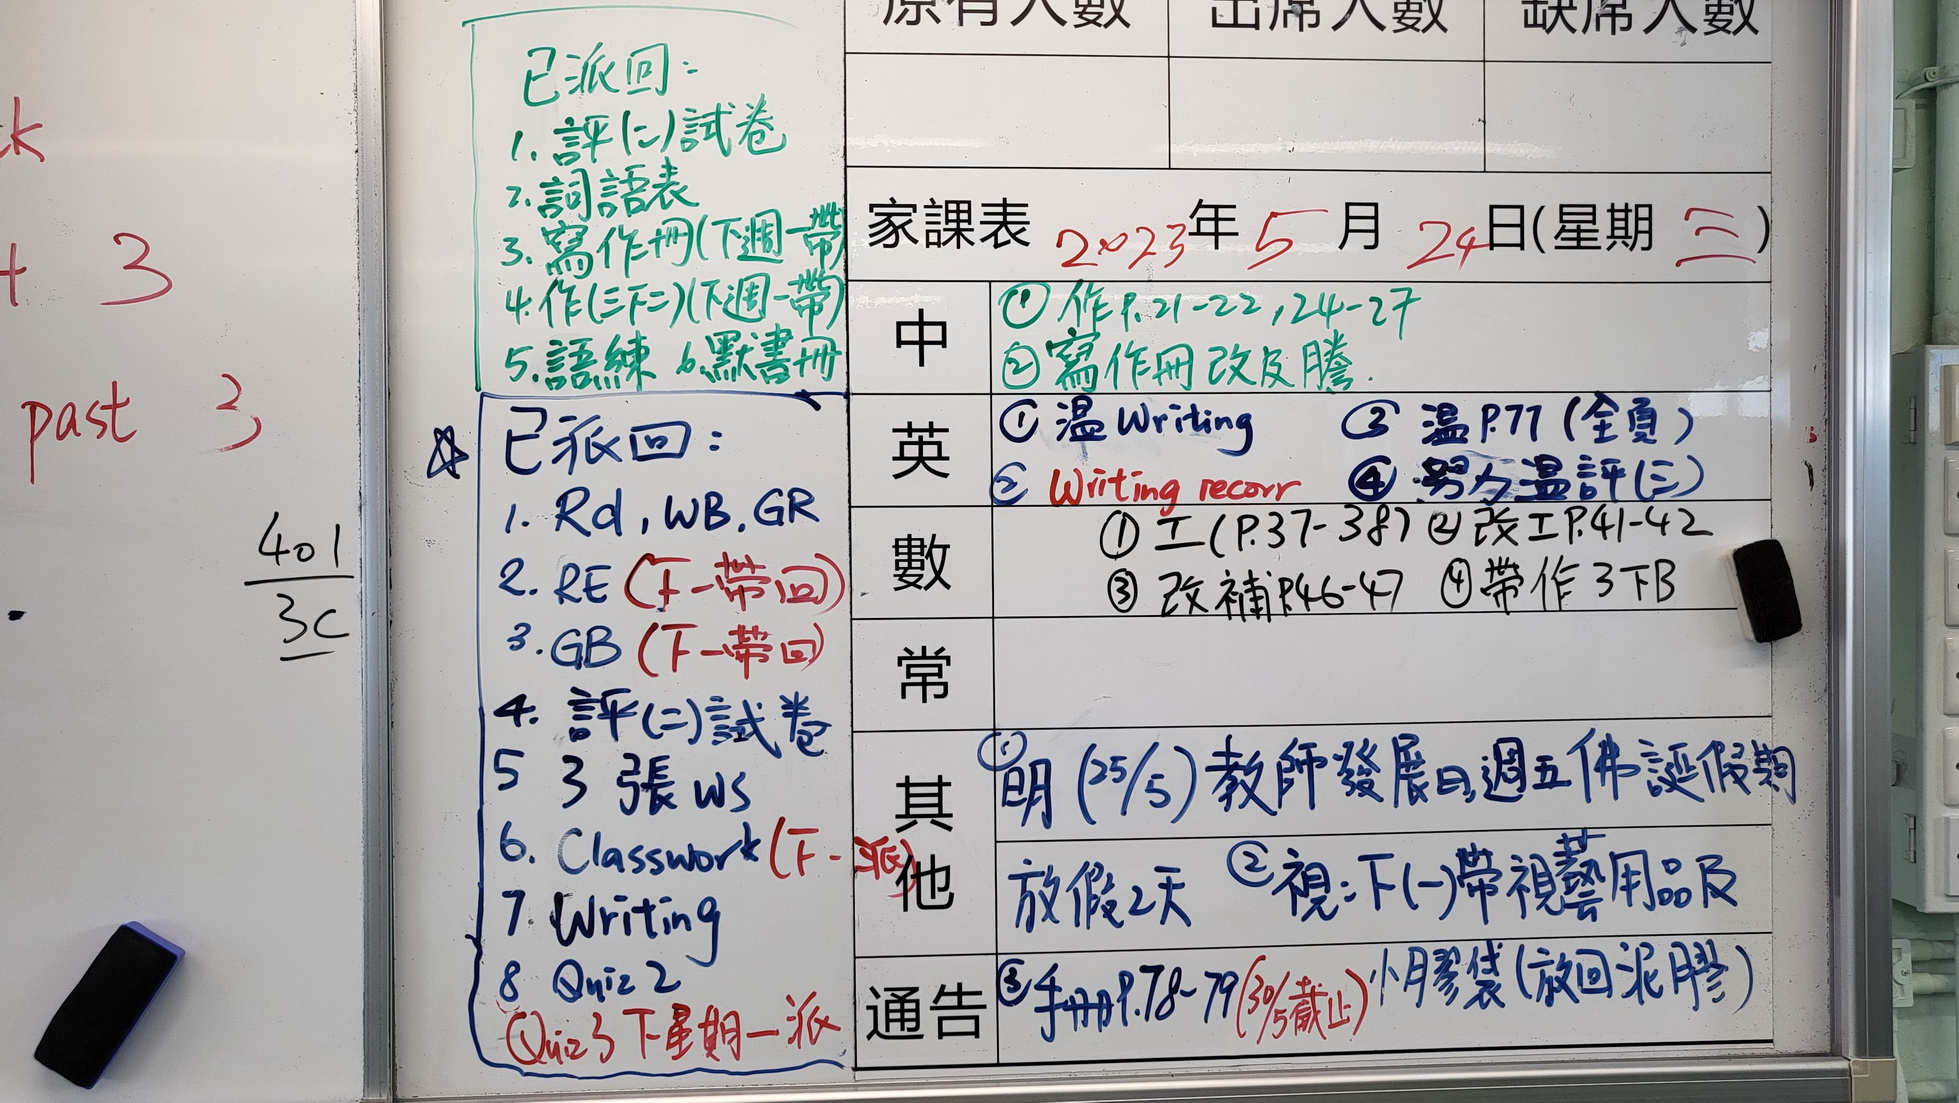 3
past 3
401
3C
已派回：
1. 評(二)試卷
2. 詞語表
3. 寫作冊(下週一帶)
4. 作(三下二)(下週一帶)
5. 語練 6. 默書冊
已派回：
1. Rd, WB, GR
2. RE (下一帶回)
3. GB (下一帶回)
4. 評(二)試卷
5 3 張 WS
6. Classwork (下一派)
7. Writing
8 Quiz 2
Quiz 3 下星期一派
原有人數 出席人數 缺席人數
家課表 2023年 5 月 24日(星期 三)
中
① 作 P.21-22, 24-27
② 寫作冊改及謄.
英
① 温 Writing ③ 温 P.77 (全頁)
② Writing recorr ④ 努力温評(三)
數
① 工(P.37-38) ② 改工P.41-42
③ 改補P.46-47 ④ 帶作3下B
常
其他
① 明(25/5)教師發展日,週五佛誕假期
放假2天 ② 視:下(一)帶視藝用品及
通告
③ 手冊P.78-79(30/5截止) 小膠袋(放回泥膠)